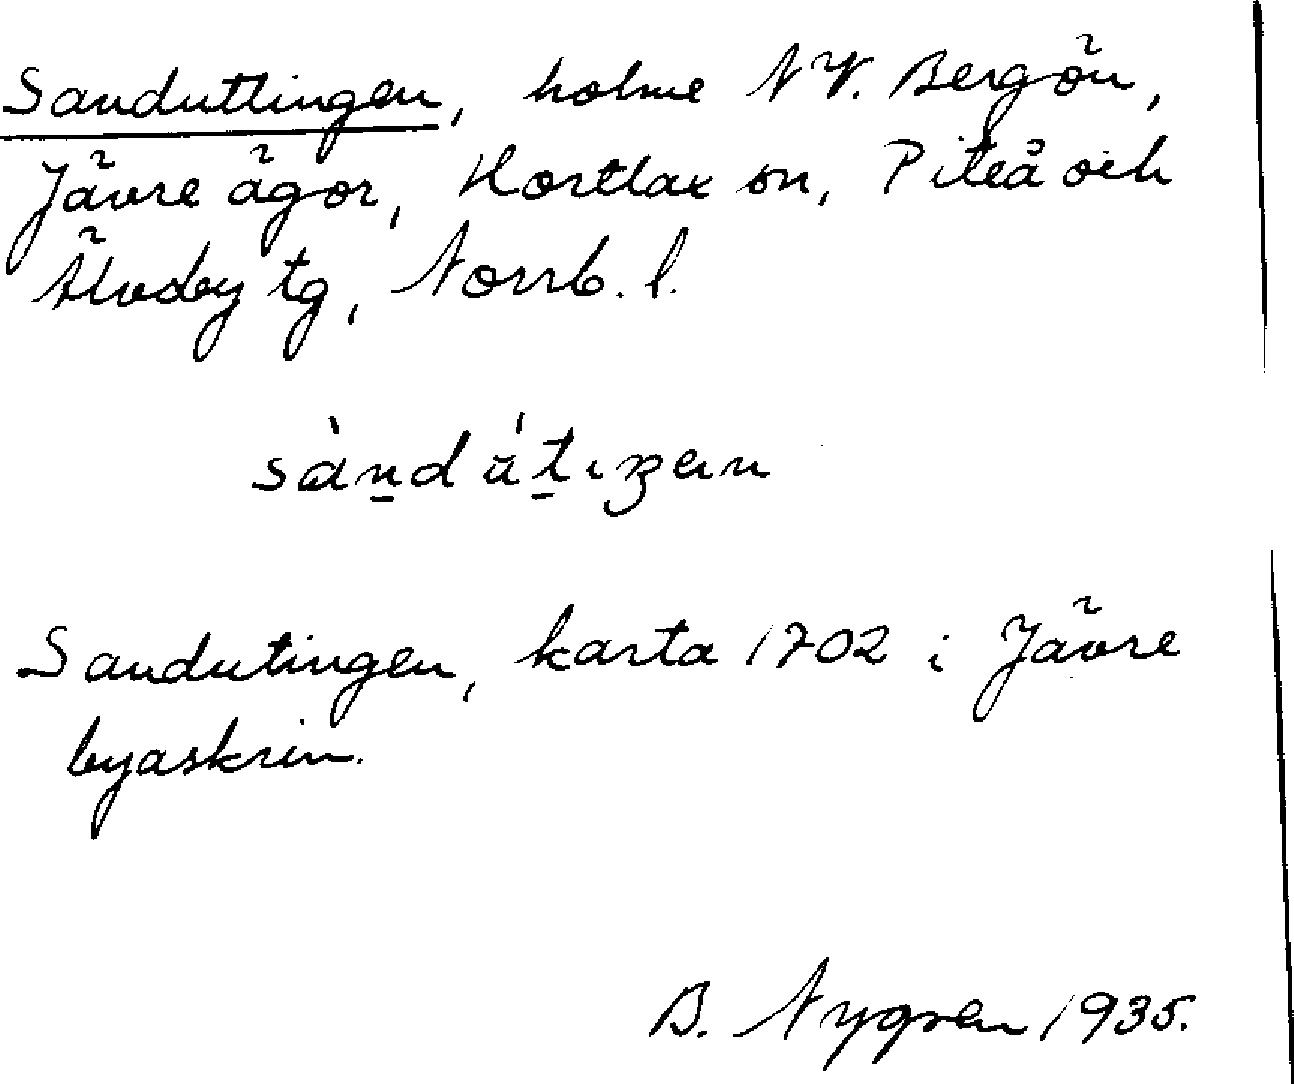 Sanduttingen, holme NV. Bergön,
Jävre ägor, Hortlax sn, Piteå och
Älvsby tg, Norrb. l.
sàndútiŋen
Sandutingen, karta 1702 i Jävre
byaskrin.
B. Nygren 1935.